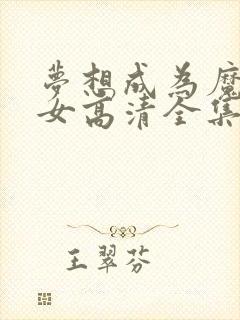 夢想成為魔
女高清全集
王翠芬